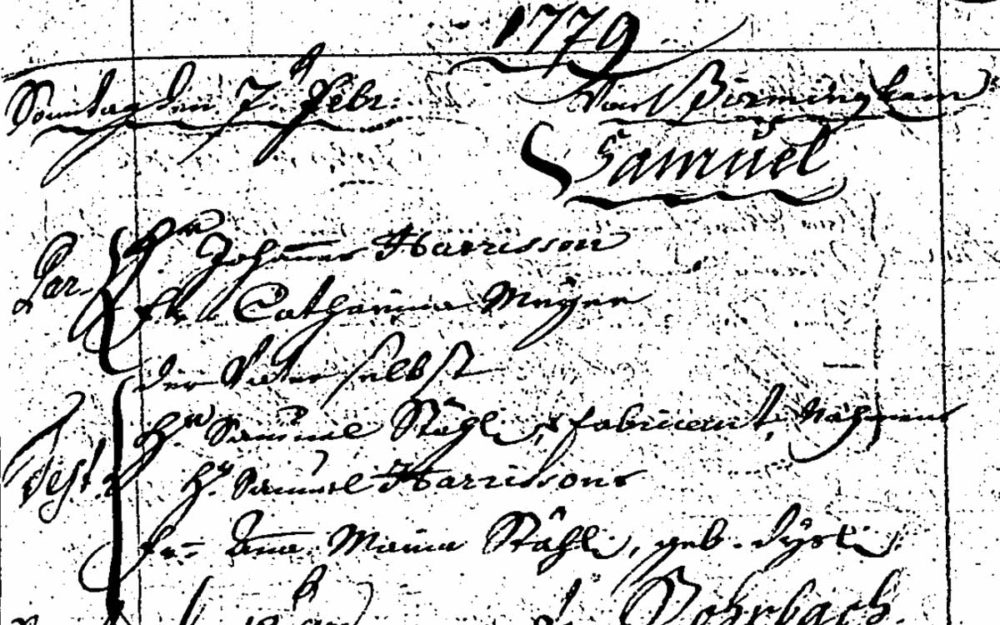 1779
Sonntag den 7. Febr: Von Birmingham
Samuel
Par. Hr. Johannes Harrisson
Fr. Catharina Meyer
der Vater selbst
Test. Hr. Samuel Stähli, Fabricant, Nahmens
Hr. Samuel Harrissons
Fr. Anna Maria Stähli, geb. Dysli
Rohrbach.